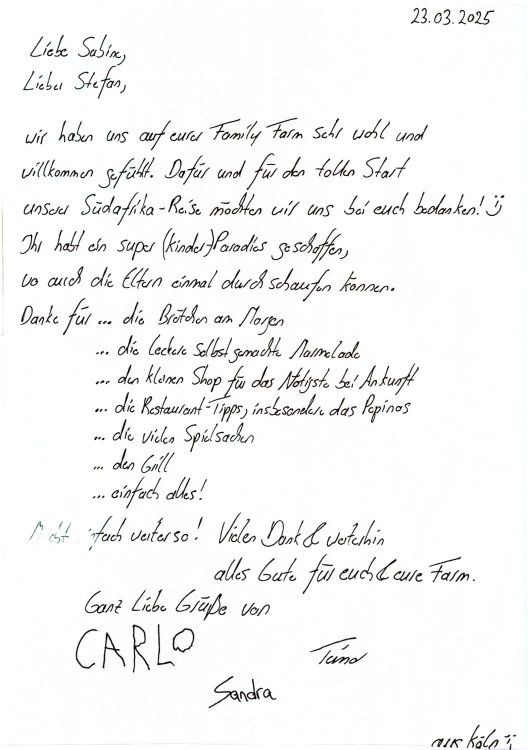 23.03.2025
Liebe Sabine,
Lieber Stefan,
wir haben uns auf eurer Family Farm sehr wohl und
willkommen gefühlt. Dafür und für den tollen Start
unserer Südafrika-Reise möchten wir uns bei euch bedanken! :)
Ihr habt ein super (Kinder-)Paradies geschaffen,
wo auch die Eltern einmal durchschaufen können.
Danke für ... die Brötchen am Morgen
... die leckere selbstgemachte Marmelade
... den kleinen Shop für das Nötigste bei Ankunft
... die Restaurant-Tipps, insbesondere das Pepinos
... die vielen Spielsachen
... den Grill
... einfach alles!
Macht einfach weiter so! Vielen Dank & weiterhin
alles Gute für euch & eure Farm.
Ganz Liebe Grüße von
CARLO
Timo
Sandra
aus Köln :)